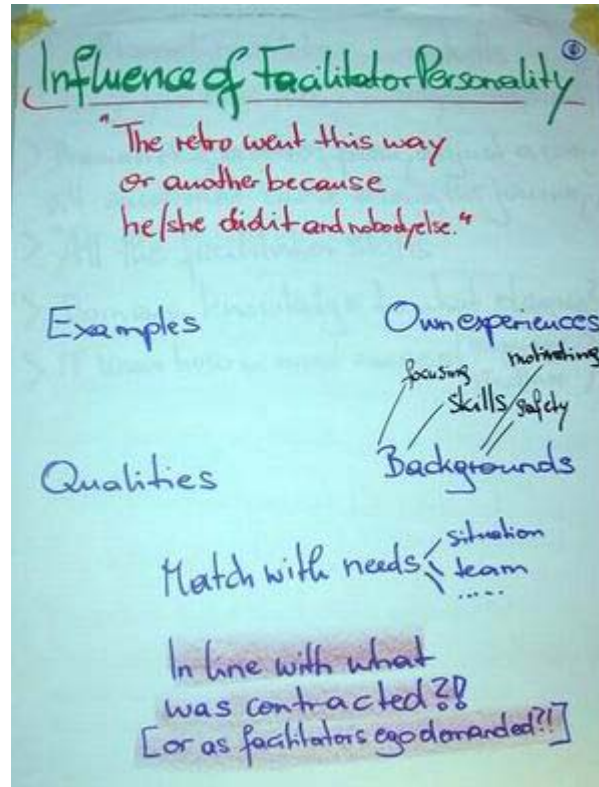 Influence of Facilitator Personality
"The retro went this way
or another because
he/she did it and nobody else."
Examples
Own experiences
focusing
motivating
skills
safety
Qualities
Backgrounds
Match with needs
situation
team
.....
In line with what
was contracted?!
[or as facilitators ego demanded?!]